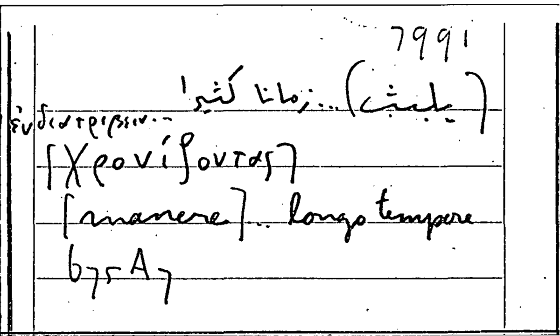 7991
(يلبث)... زمانا كثيرا
ἐνδιατρίβειν...
[χρονίζοντας]
[manere]... longo tempore
675A7